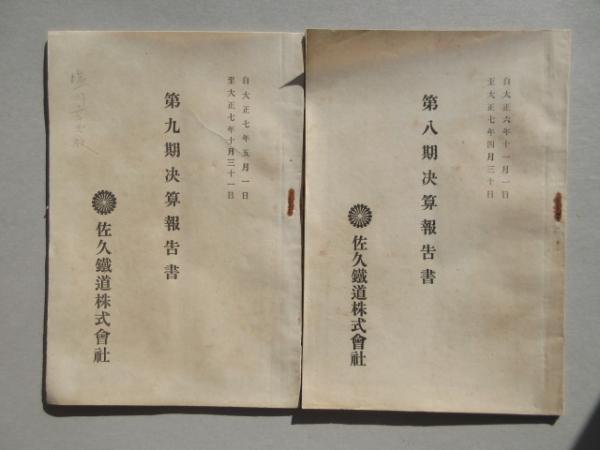 自大正六年十一月一日
至大正七年四月三十日
第八期決算報告書
佐久鐵道株式會社
自大正七年五月一日
至大正七年十月三十一日
第九期決算報告書
佐久鐵道株式會社